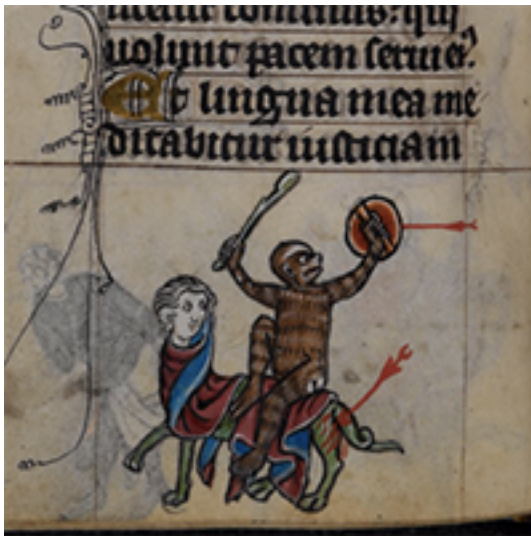 dominus: qui
uolunt pacem serui eiꝰ
Et lingua mea me
ditabitur iusticiam